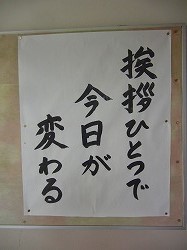 挨拶ひとつで
今日が
変わる